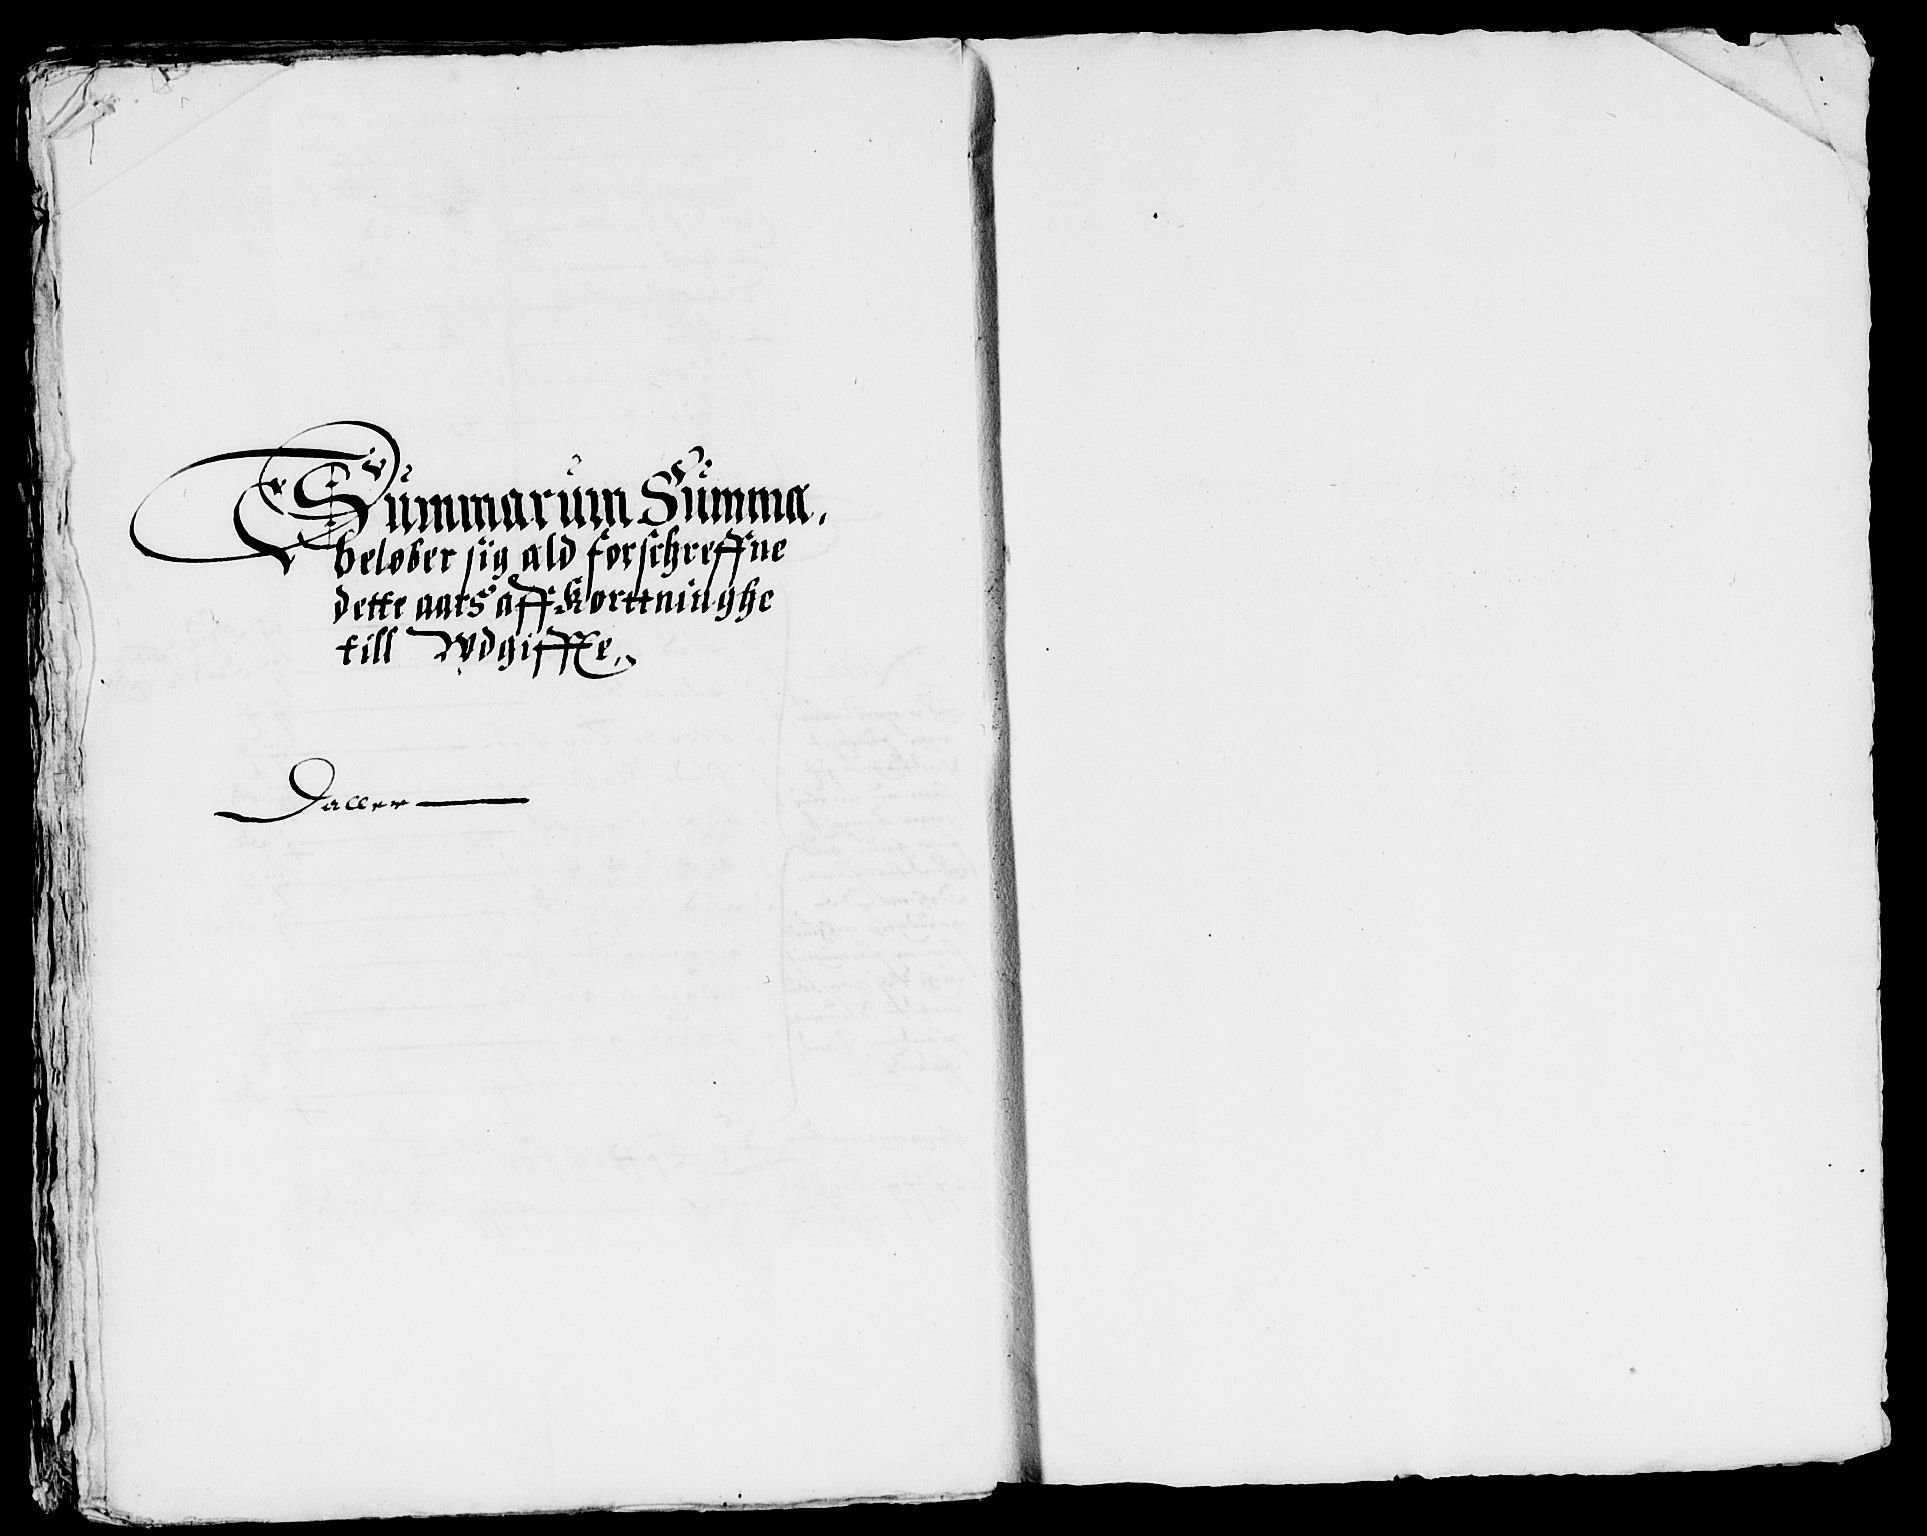 Summarum Summa,
beløber sig ald forschreffne
dette aars aff Korttninghe
till Wdgiffte,,
Daller